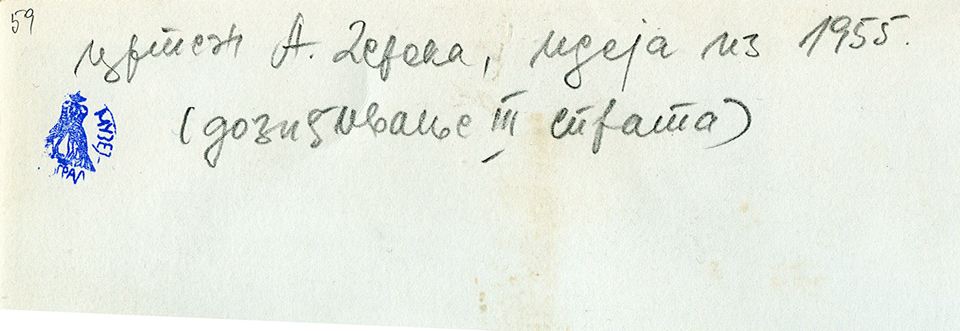 59
цртеж А. Дерока, идеја из 1955.
(дозиђивање III спрата)
МУЗЕЈ-
ГРАД